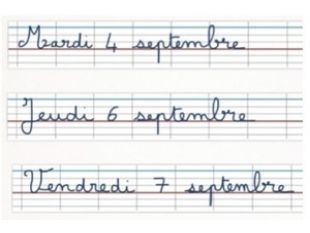 Mardi 4 septembre
Jeudi 6 septembre
Vendredi 7 septembre